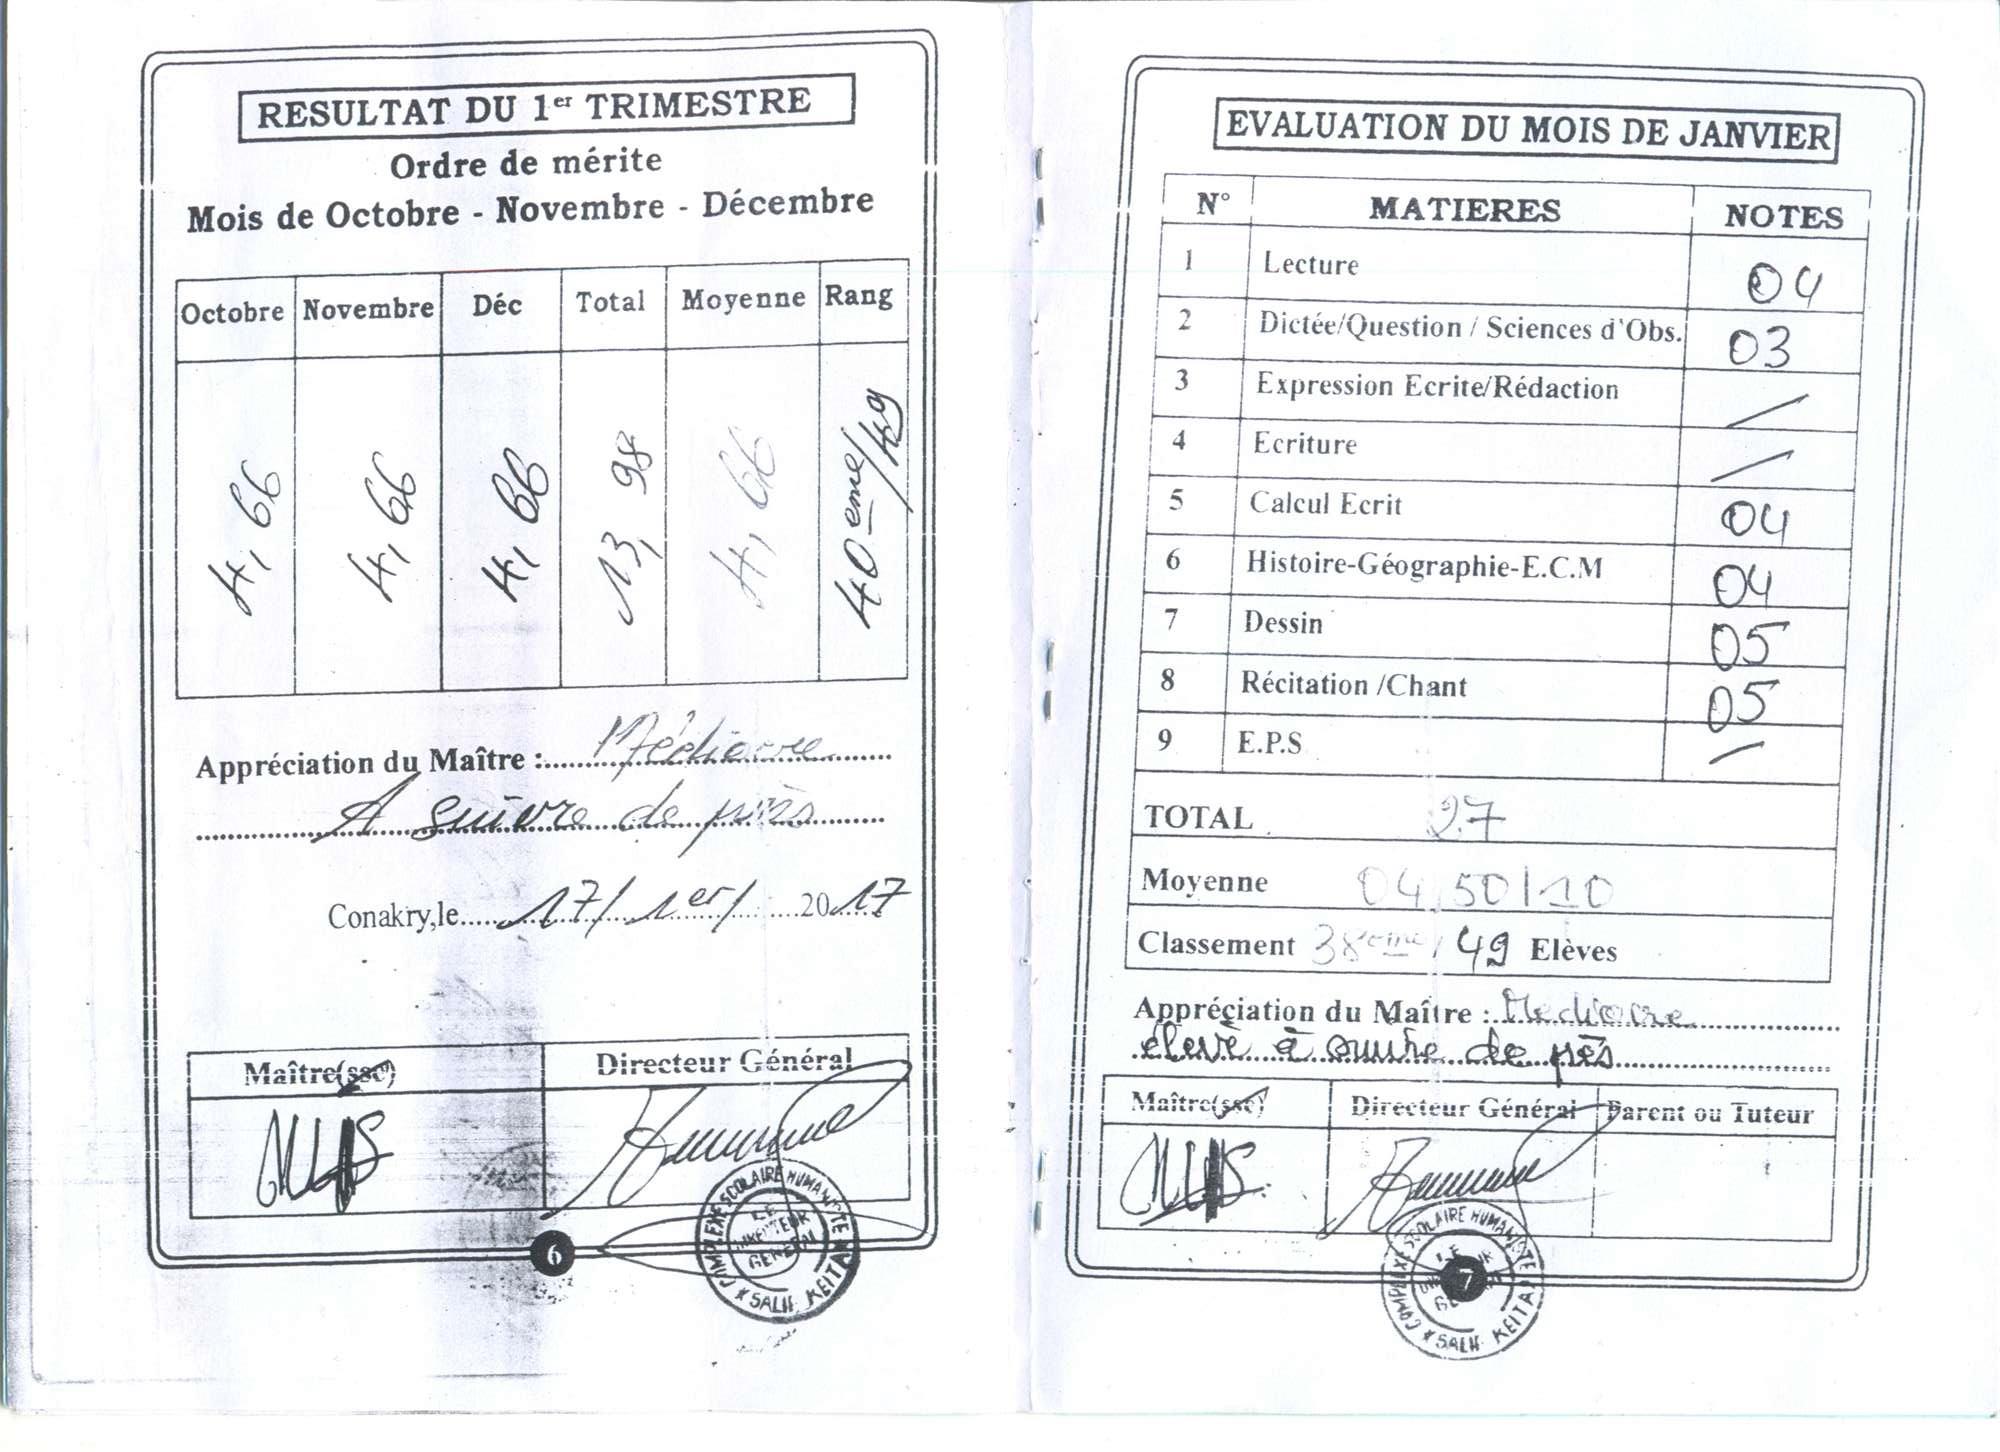 RESULTAT DU 1er TRIMESTRE
Ordre de mérite
Mois de Octobre - Novembre - Décembre
Octobre Novembre Déc Total Moyenne Rang
4,66 4,66 4,66 13,98 4,66 40ème/49
Appréciation du Maître : Médiocre
A suivre de près
Conakry,le 17/1er/ 2017
Maître(sse) Directeur Général
COMPLEXE SCOLAIRE HUMANISTE
LE
DIRECTEUR
GENERAL
* SALIF KEITA *
6
EVALUATION DU MOIS DE JANVIER
N° MATIERES NOTES
1 Lecture 04
2 Dictée/Question / Sciences d'Obs. 03
3 Expression Ecrite/Rédaction /
4 Ecriture /
5 Calcul Ecrit 04
6 Histoire-Géographie-E.C.M 04
7 Dessin 05
8 Récitation /Chant 05
9 E.P.S /
TOTAL 27
Moyenne 04,50/10
Classement 38ème/49 Elèves
Appréciation du Maître : Mediocre
élève à suivre de près
Maître(sse) Directeur Général Parent ou Tuteur
COMPLEXE SCOLAIRE HUMANISTE
LE
* SALIF KEITA *
7